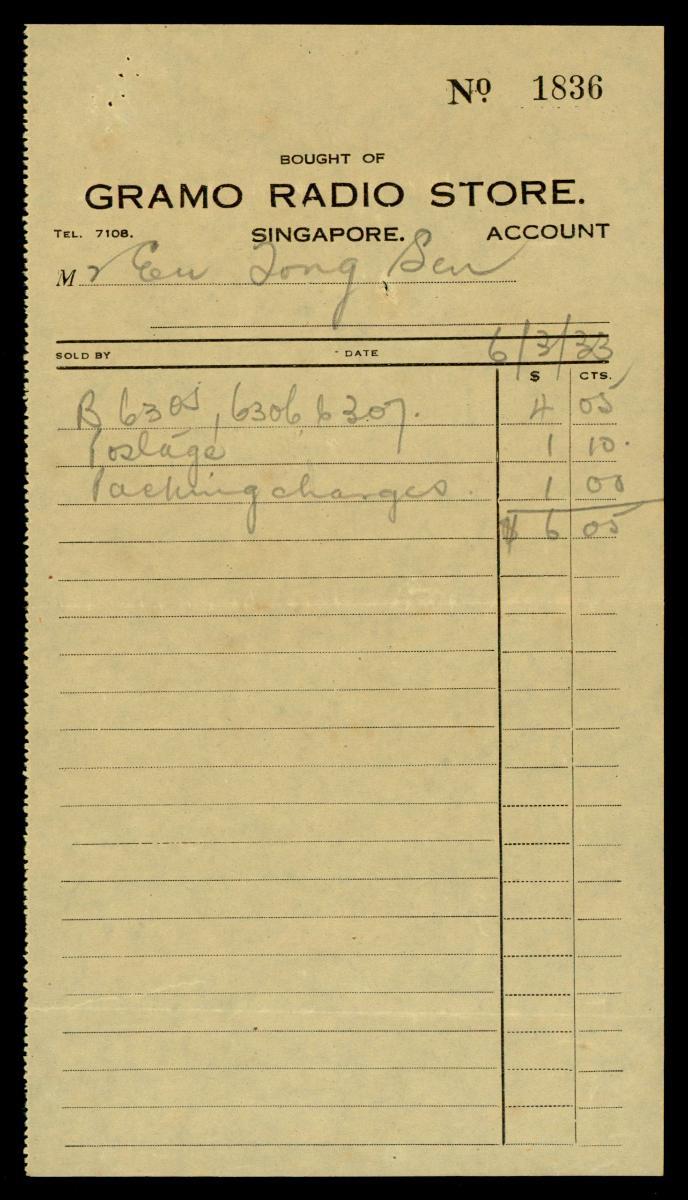 No 1836
BOUGHT OF
GRAMO RADIO STORE.
TEL. 7108. SINGAPORE. ACCOUNT
Mr Eu Tong Sen
SOLD BY DATE 6/3/33
$ CTS.
B 6305, 6306 6307. 4 05
Postage 1 10.
Packing charges. 1 00
$ 6 05